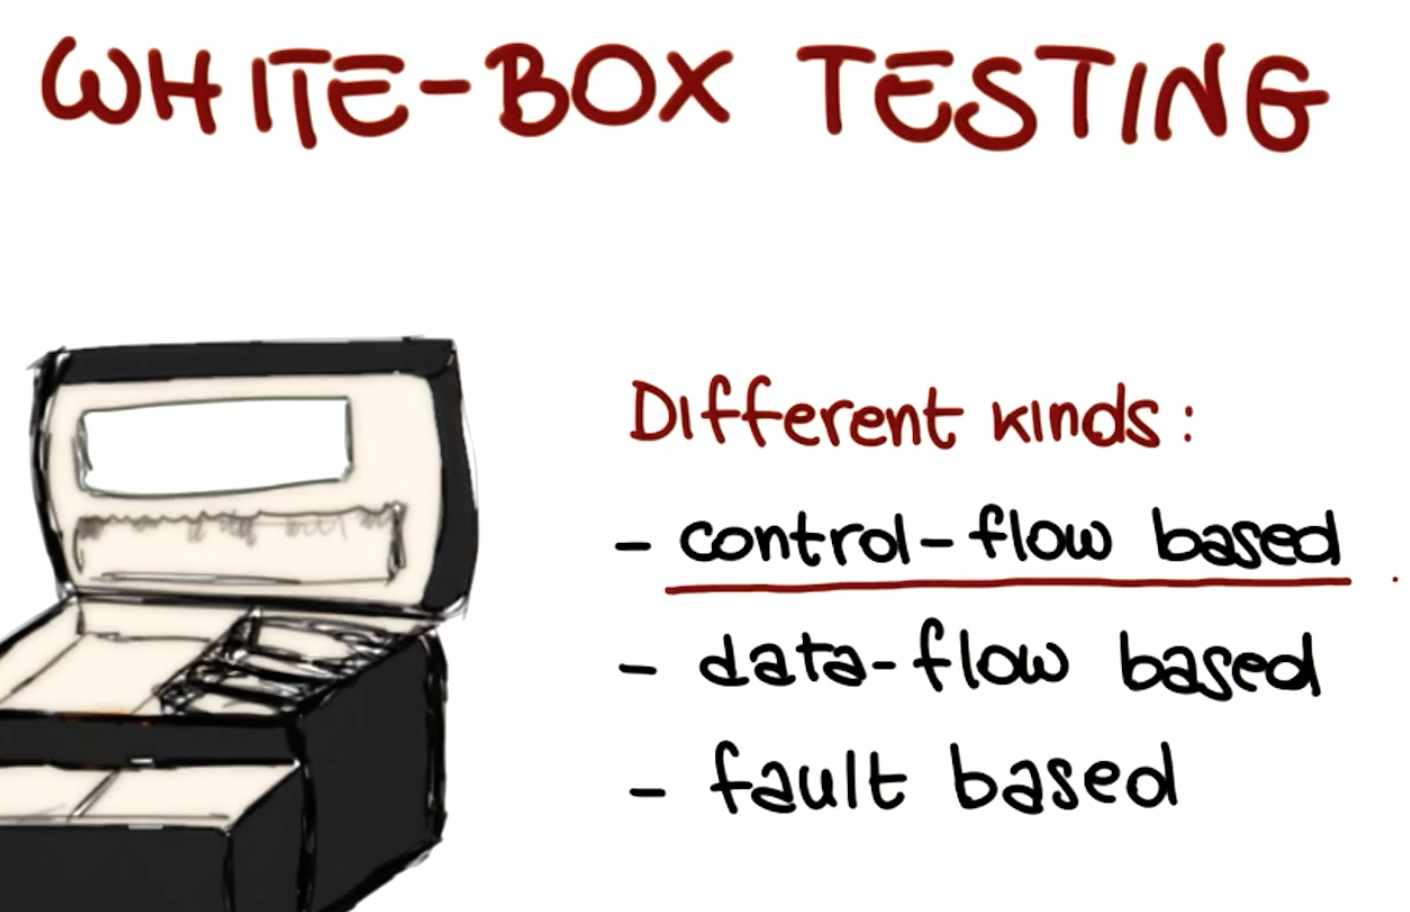 WHITE-BOX TESTING
Different kinds:
- control-flow based
- data-flow based
- fault based